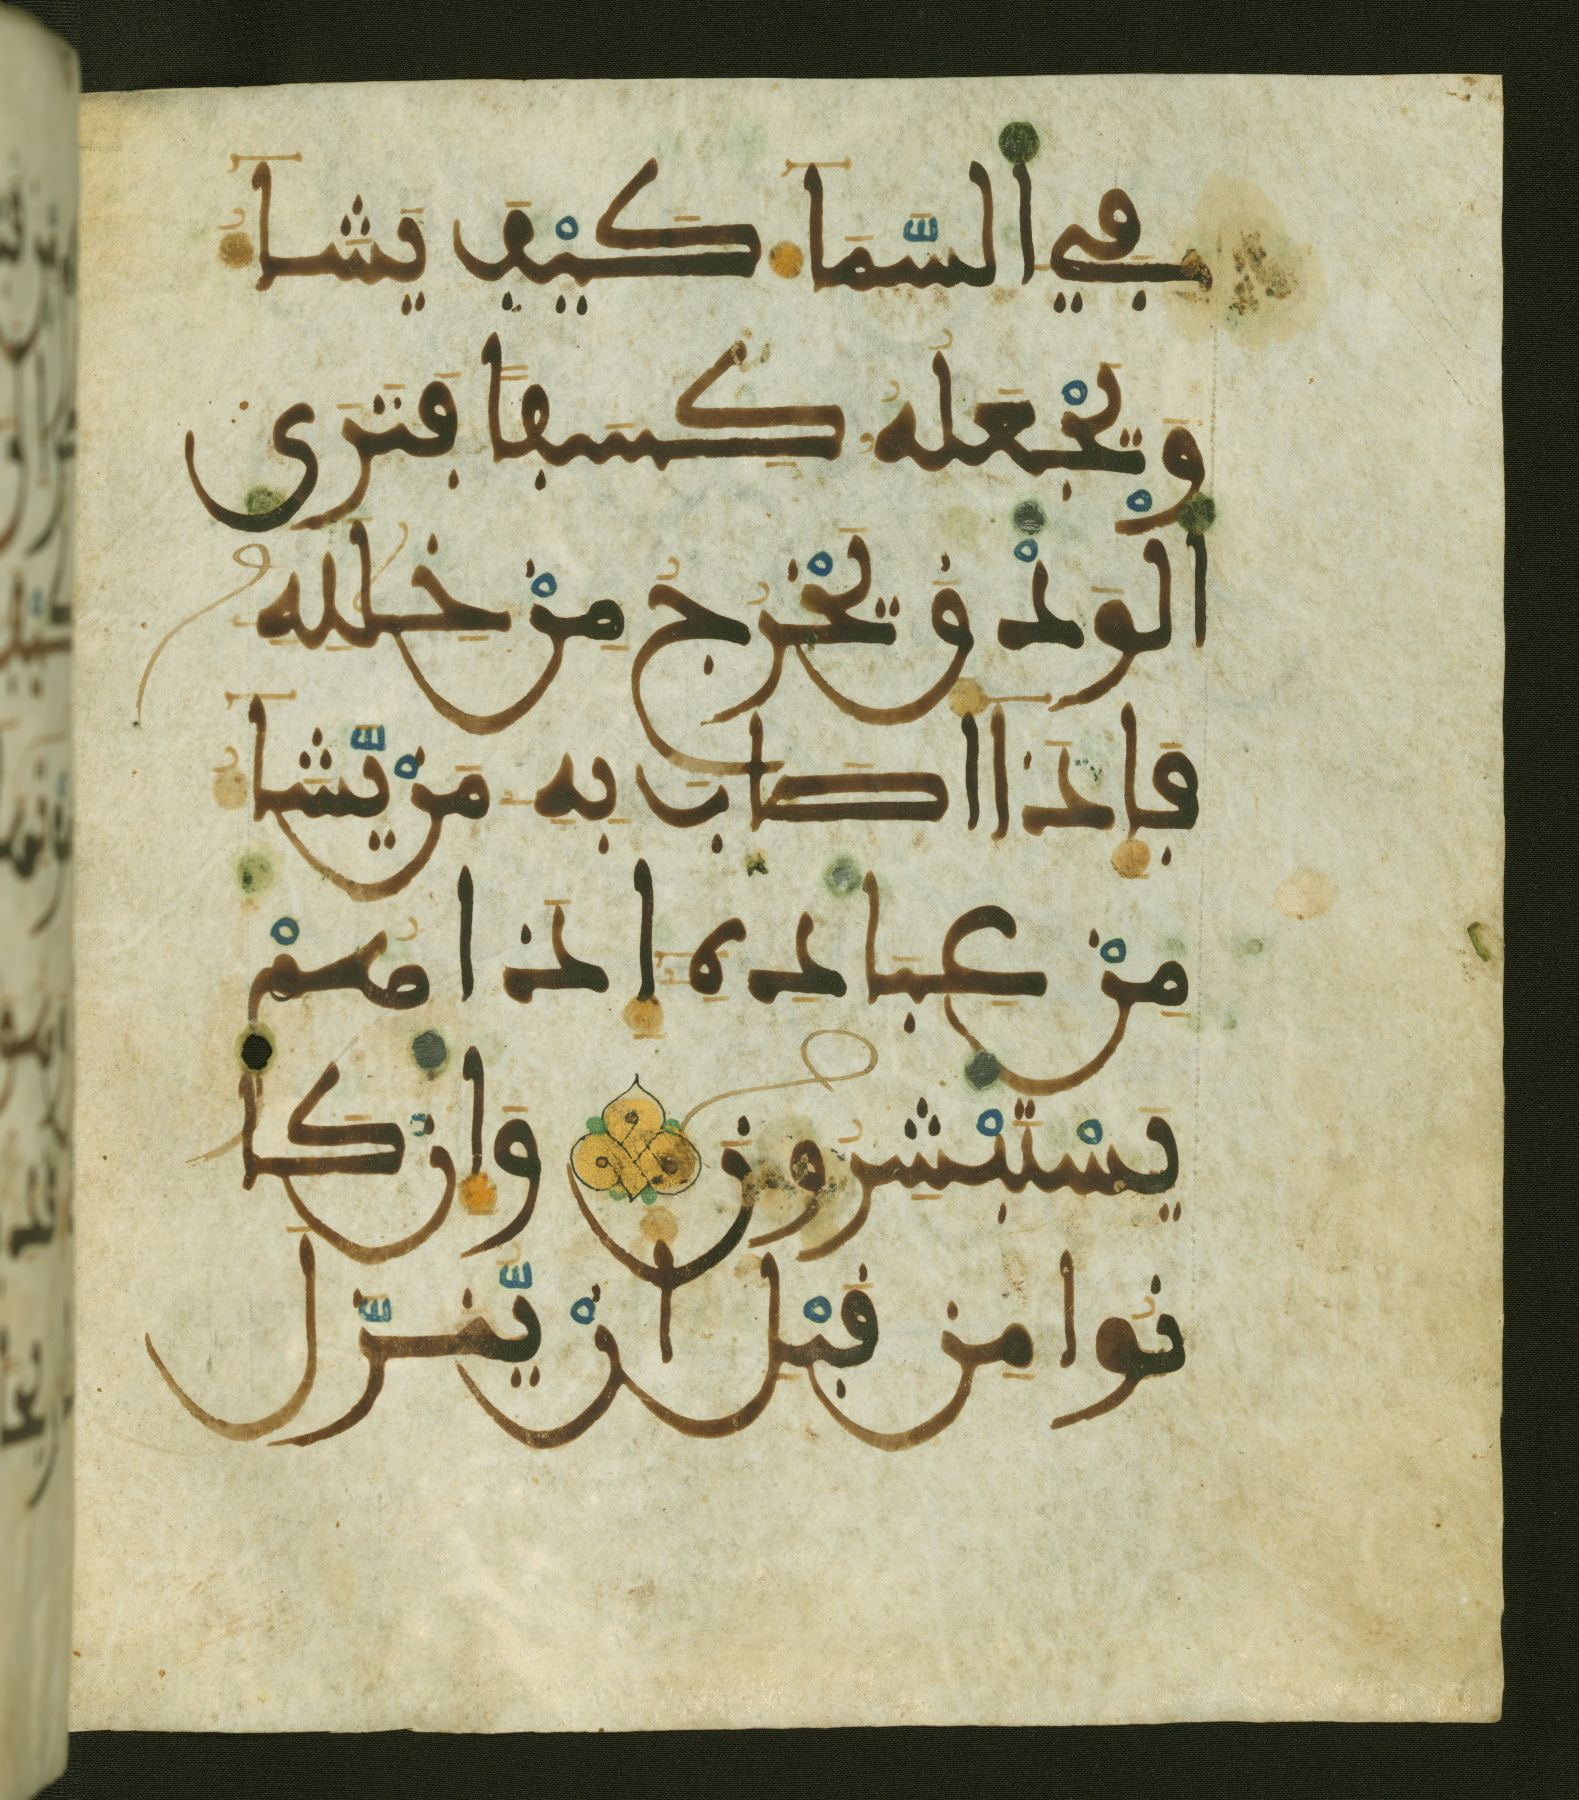 فِي السَّمَآءِ كَيْفَ يَشَآءُ
وَيَجْعَلُهُ كِسَفًا فَتَرَى
الْوَدْقَ يَخْرُجُ مِنْ خِلَلِهِ
فَإِذَآ أَصَابَ بِهِ مَنْ يَّشَآءُ
مِنْ عِبَادِهِ إِذَا هُمْ
يَسْتَبْشِرُونَ وَإِن كَا
نُوا مِن قَبْلِ أَنْ يُّنَزَّلَ